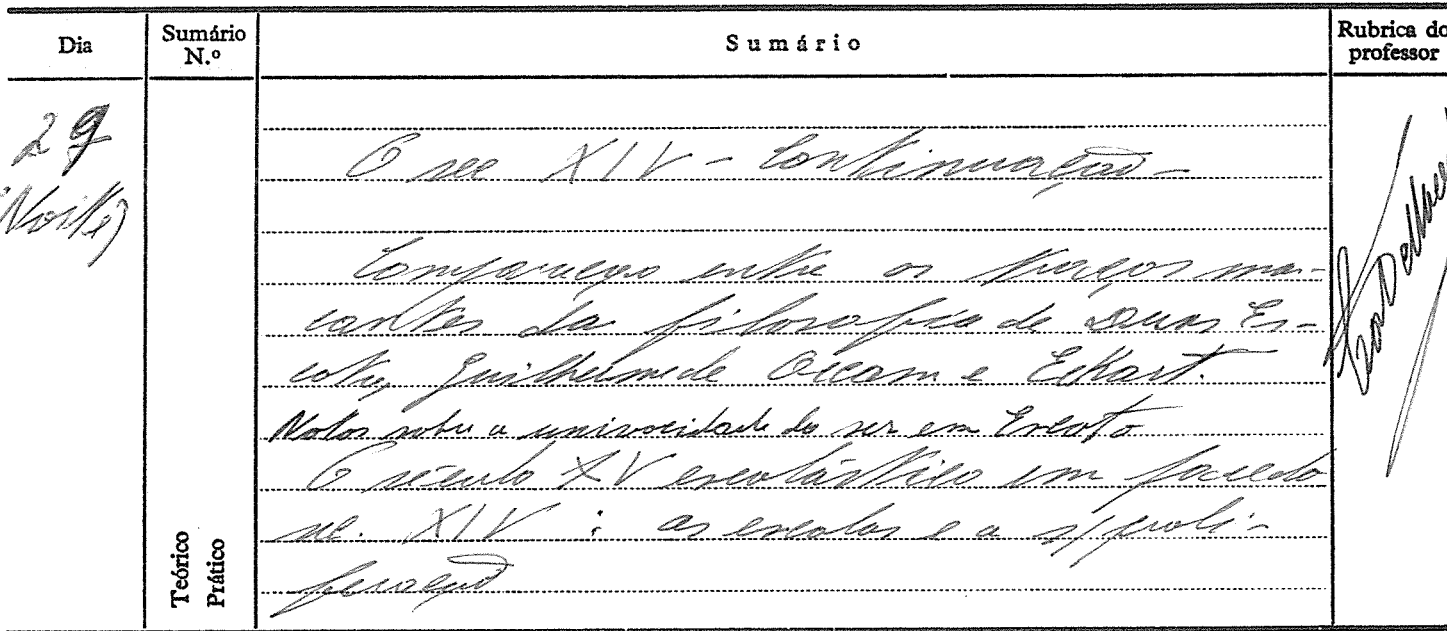 Dia
Sumário N.º
Sumário
Rubrica do professor
29
(Noite)
O sec XIV - Continuação -
Comparação entre os traços mar-
cantes da filosofia de Duns Es-
coto, Guilherme de Occam e Eckart.
Notas sobre a univocidade do ser em Escoto
O século XV escolástico em face do
sec. XIV : as escolas e a s/ proli-
feração
Teórico
Prático